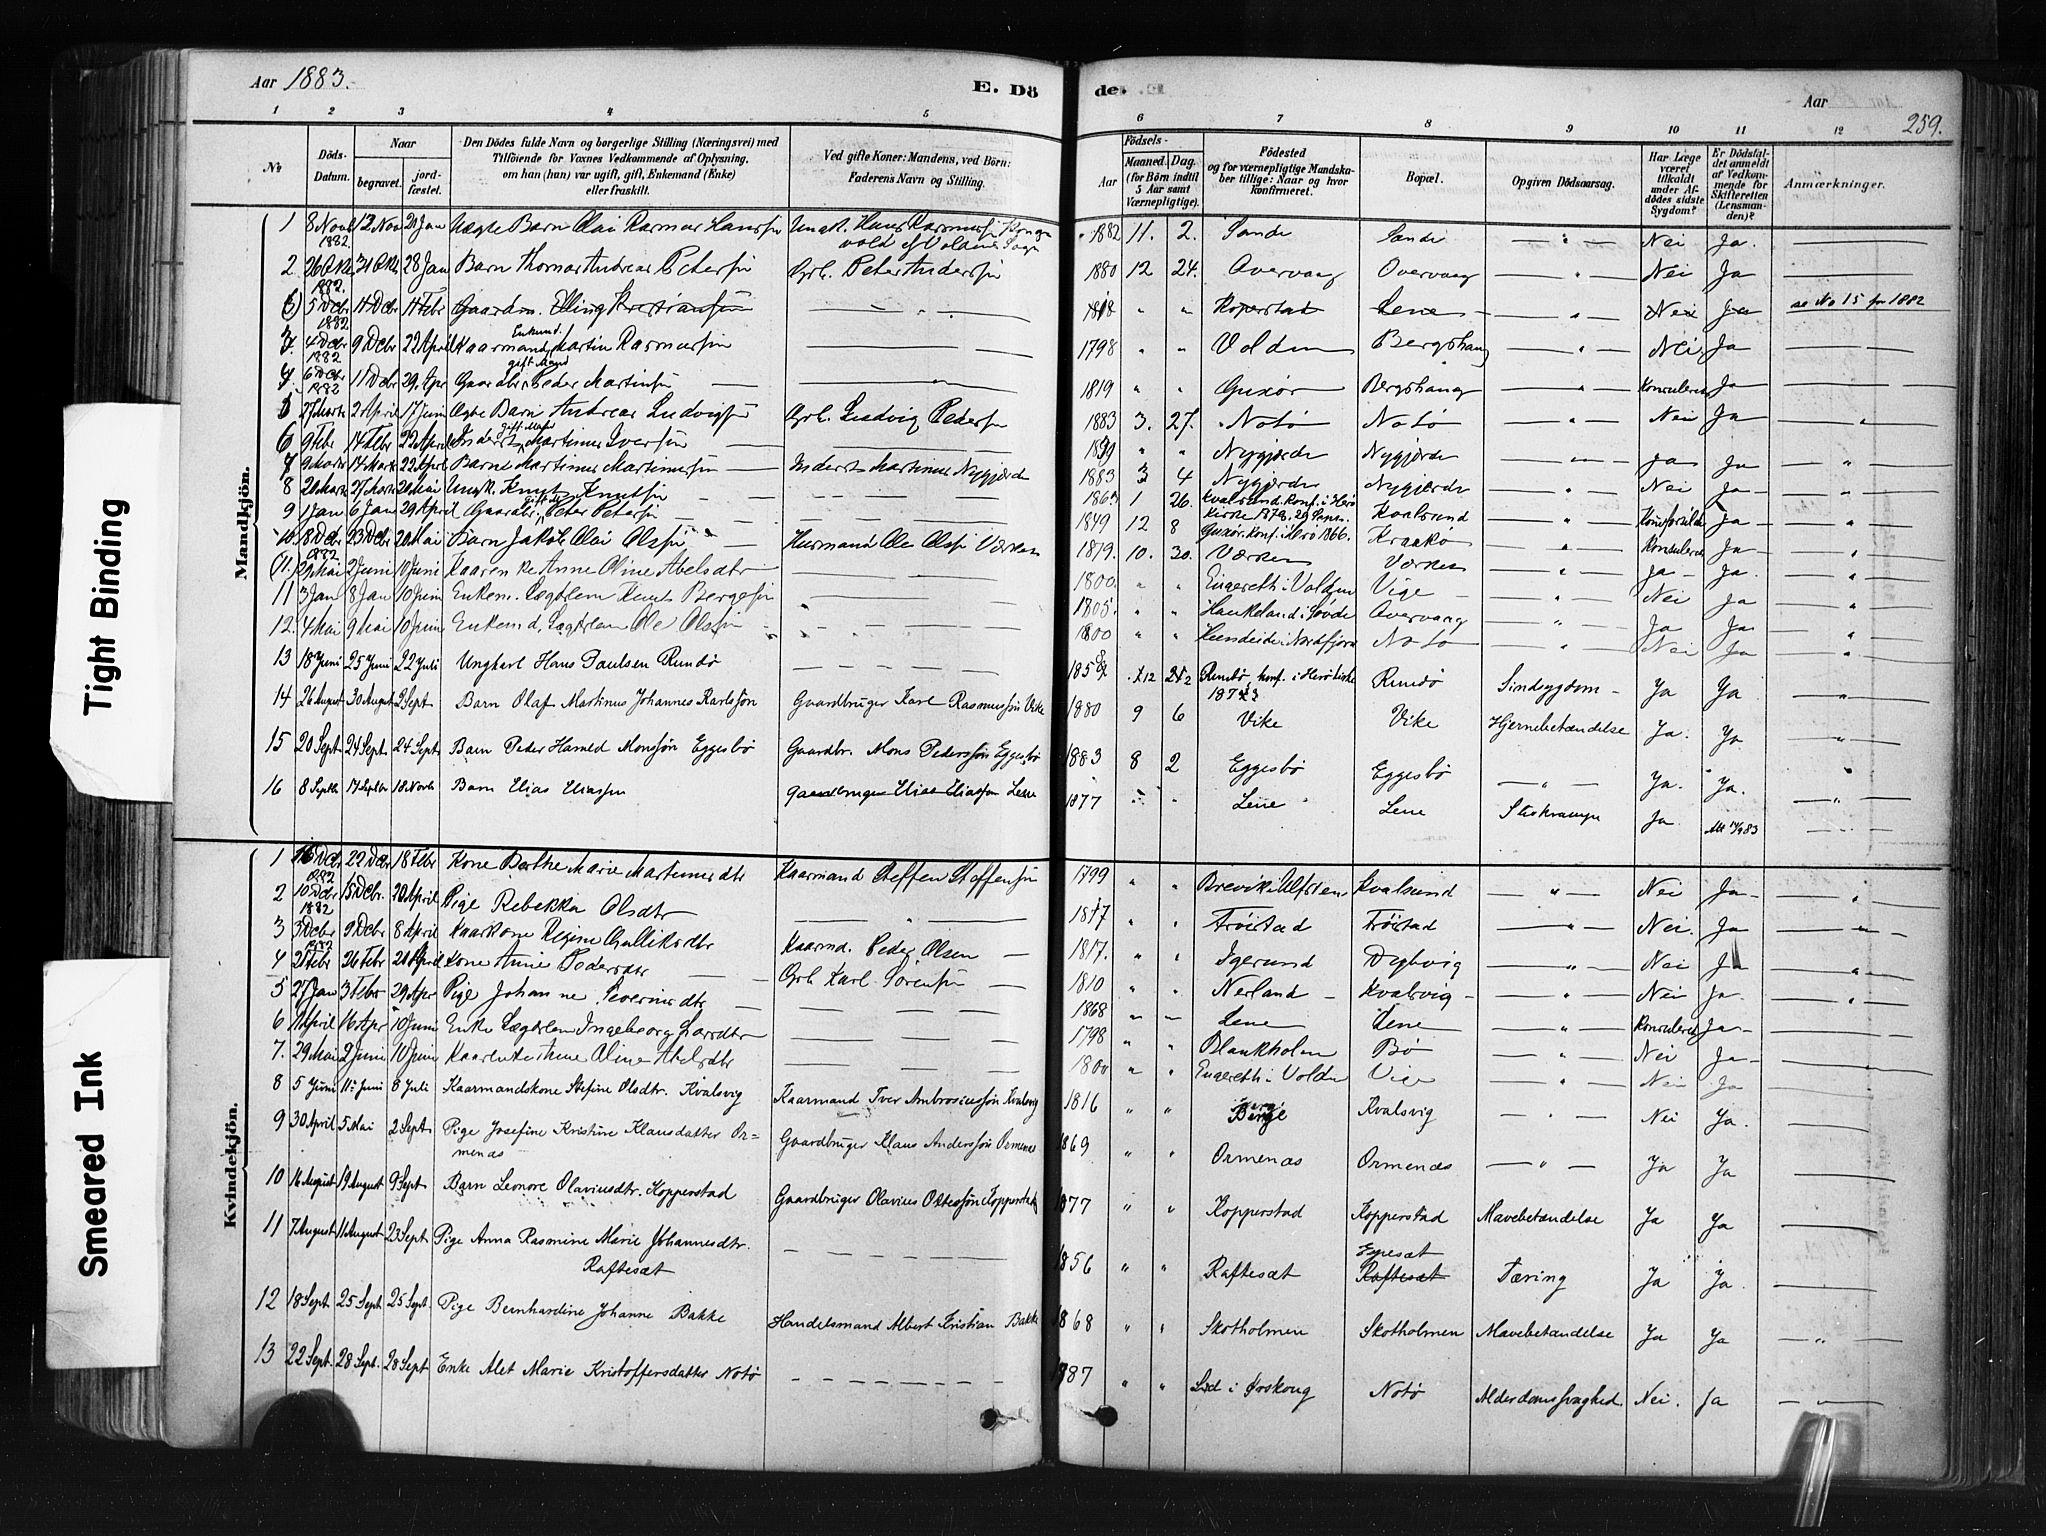 Aar 1883.
E. Dö
de.
Aar
259.
1 2 3 4 5 6 7 8 9 10 11 12
No
Döds-Datum.
Naar
begravet.
jordfæstet.
Den Dödes fulde Navn og borgerlige Stilling (Næringsvei) med
Tilföiende for Voxnes Vedkommende af Oplysning,
om han (hun) var ugift, gift, Enkemand (Enke)
eller fraskilt.
Ved gifte Koner: Mandens, ved Börn:
Faderens Navn og Stilling.
Födsels-
Aar
Maaned. Dag.
(for Börn indtil
5 Aar samt
Værnepligtige).
Födested
og for værnepligtige Mandskaber tillige: Naar og hvor
konfirmeret.
Bopæl.
Opgiven Dödsaarsag.
Har Læge
været
tilkaldt
under Afdödes sidste
Sygdom?
Er Dödsfaldet anmeldt
af Vedkommende for
Skifteretten
(Lensmanden)?
Anmærkninger.
Mandkjön.
1 8 Novb 1882 12 Nov 21 Jan Uægte Barn Olai Rasmus Hanssen Ungk. Hans Rasmussen 1882 11. 2. Sande Sande — " — Nei Ja.
2. 26 Oktb 1882. 31 Oktb 28 Jan Barn Thomas Andreas Petersen Grb. Peter Anderssen 1880 12 24. Overvaag Overvaag — " — Nei Ja
5 Dcbr 1882 11 Dcbr 11 Febr Gaardm. Elling Kristiansen 1818 " " Koperstad Lene — " — Nei Ja se No 15 for 1882
3. 4 Dcbr 1882 9 Dcbr 22 April Kaarmand Enkemd. Martin Rasmussen 1798 " " Volden Bergshaug — " — Nei Ja
4 6 Dcbr 1882 11 Dcbr 29. Apr Gaardbr. gift Mand Peder Martinsen 1819 " " Gurskø Bergshaug — " — Konsuleret Ja
5 27 Marts 2 April 17 Juni Ægte Barn Andreas Ludvigsen Grb. Ludvig Pedersen 1883 3. 27. Notø Notø — " — Nei Ja
6 9 Febr 14 Febr 22 April Inderst gift Mand Martinus Iversen 1839 " " Nygjerde Nygjerde — " — Ja Ja
7 9 Marts 14 Marts 22 April Barn Martinus Martinussen Inderst Martinus Nygjerde 1883 3 4 Nygjerde Nygjerde — " — Nei Ja
8 20 Marts 27 Marts 20 Mai Ungk. Knut Knutsen 1863 1 26. Kvalsund. Konf. i Herø Kirke 1878. Kvalsund Ja
9 1 Jan 6 Jan 29 April Gaardbr. Peter Petersen 1849 12 8 Gurskø. Konf. i Herø 1866. Kragkø — " — Konsuleret Ja
10. 18 Dcbr 1882 23 Dcbr 20 Mai Barn Jakob Olai Olsen Husmand Ole Olsen Værkes 1879. 10. 30. Værkes Værkes — " — Ja Ja.
(11. 29 Mai 2 Juni 10 Juni Kaarenke Anne Oline Abelsdtr 1800. " " Engeseth i Volden Vige — " — Nei Ja
11 3 Jan 8 Jan 10 Juni Enkem. Lægdslem Knut Bergesen 1805. " " Haukeland i Søvde Overvaag — " — Ja Ja
12. 4 Mai 9 Mai 10 Juni Enkemd. Lægdslem Ole Olsen 1800 " " Hundeide i Nordfjord Notø — " — Nei Ja
13 18 Juni 25 Juni 22 Juli Ungkarl Hans Paulsen Rundø 12 Rundø, konf. i Herø Kirke Rundø Sindsygdom Ja Ja
14 26 August 30 August 2 Sept Barn Olaf Martinus Johannes Karlssøn Gaardbruger Karl Rasmussøn Vike 1880 9 6 Vike Vike Hjernebetændelse Ja. Ja
15 20 Sept. 24 Sept. 24 Sept. Barn Peder Harald Monssøn Eggesbø Gaardbr. Mons Pederssøn Eggesbø 1883 8 2 Eggesbø Eggesbø — " — Ja. Ja.
16 8 Septbr 17 Septbr 18 Novbr Barn Elias Eliassen Gaardbruger Elias Eliassen Lene 1877 " " Lene Lene Strukrampe Ja
Kvindekjön.
1 16 Dcbr 1882 22 Dcbr 18 Febr Kone Berthe Marie Martinusdtr Kaarmand Steffen Stoffensen 1799 " " Brevik i Ulfsten Kvalsund — " — Nei Ja
2 10 Dcbr 1882 15 Dcbr. 20 April Pige Rebekka Olsdtr 1817 " " Frøistad Frøistad — " — Nei. Ja
3 3 Dcbr 1882 9 Dcbr 8 April Kaarkone Regine Gulliksdtr Kaarmd. Peder Olsen 1817. " " Igesund Dybvig — " — Nei Ja
4 21 Febr 26 Febr 20 April Kone Anne Pedersdtr Grb Karl Sørensen 1810 " " Nerland Kvalsvig — " — Nei Ja.
5 27 Jan 3 Febr 29 Apr Pige Johanne Severinsdtr 1868 " " Lene Lene — " — Konsuleret Ja
6 11 April 16 Apr 10 Juni Enke Lægdslem Ingeborg Larsdtr 1798 " " Blankholm Bø — " — Nei Ja
7. 29 Mai 2 Juni 10 Juni Kaarenke Anne Oline Abelsdtr 1800 " " Engeseth i Volden Vige — " — Nei Ja
8 5 Juni 11 Juni 8 Juli Kaarmandskone Stefine Olsdtr. Kvalsvig Kaarmand Iver Ambrosiussøn Kvalsvig 1816 " " Berge Kvalsvig — " — Nei Ja.
9 30 April 5 Mai 2 Sept. Pige Josefine Kristine Klausdatter Ormenæs Gaardbruger Klaus Anderssøn Ormenæs 1869 " " Ormenæs Ormenæs — " — Ja Ja
10 16 August 19 August 9 Sept Barn Leonore Olaviusdtr. Kopperstad Gaardbruger Olavius Ottessøn Kopperstad 1877 " " Kopperstad Kopperstad Mavebetændelse Ja Ja
11 7 August 11 August 23 Sept Pige Anna Rasmine Marie Johannesdtr. Raftesæt 1856 " " Raftesæt Egesæt Raftesæt Tæring Ja Ja.
12 18 Sept. 25 Sept. 25 Sept. Pige Bernhardine Johanne Bakke Handelsmand Albert Kristian Bakke 1868 " " Skotholmen Skotholmen Mavebetændelse Ja Ja — " —
13 22 Sept. 28 Sept. 28 Sept Enke Alet Marie Kristoffersdatter Notø 1787 " " Lid i Ørskoug Notø Alderdomssvaghed. Nei. Ja — " —
Tight Binding
Smeared Ink